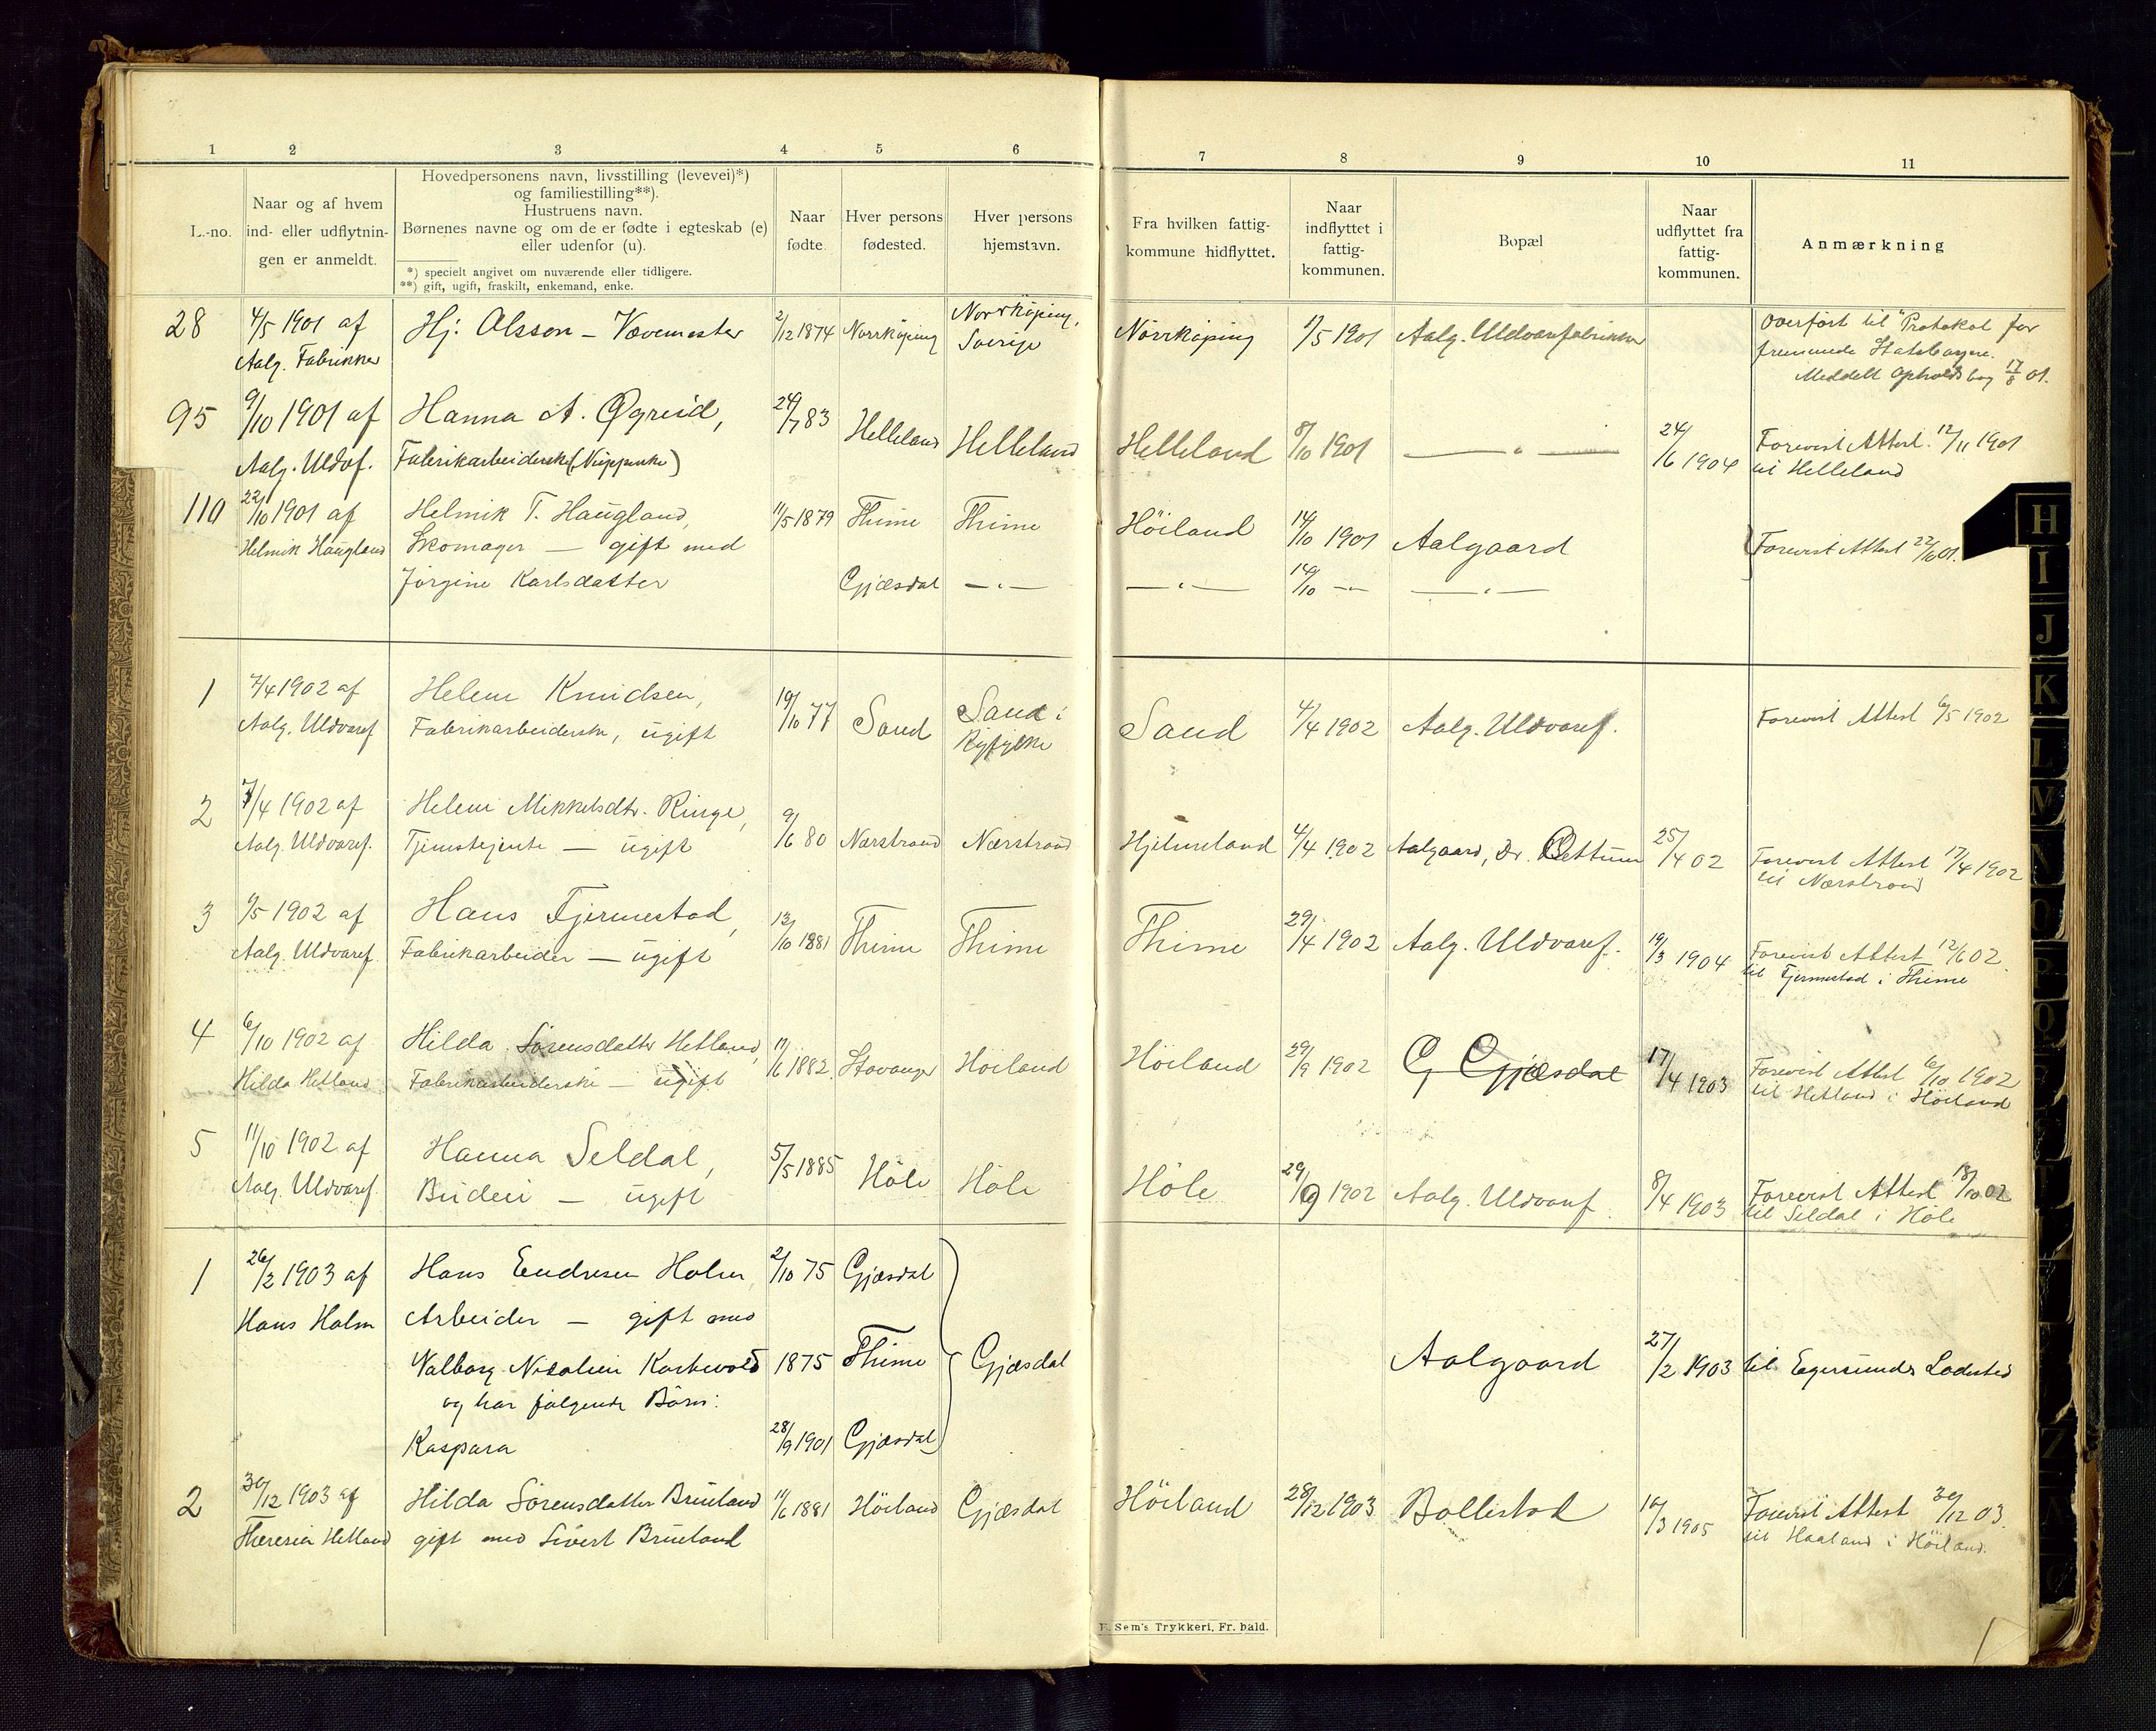 1 2 3 4 5 6 7 8 9 10 11
L.-no.
Naar og af hvem
ind- eller udflytnin-
gen er anmeldt.
Hovedpersonens navn, livsstilling (levevei)*)
og familiestilling**).
Hustruens navn.
Børnenes navne og om de er fødte i egteskab (e)
eller udenfor (u).
*) specielt angivet om nuværende eller tidligere.
**) gift, ugift, fraskilt, enkemand, enke.
Naar
fødte.
Hver persons
fødested.
Hver persons
hjemstavn.
Fra hvilken fattig-
kommune hidflyttet.
Naar
indflyttet i
fattig-
kommunen.
Bopæl
Naar
udflyttet fra
fattig-
kommunen.
Anmærkning
28 4/5 1901 af Hj. Olsson – Vævemester 2/12 1874 Norrköping Norrköping, Nörrköping 1/5 1901 Aalg. Uldvarefabrikker Overført til Protokol for
Aalg. Fabrikker Sverige fremmede Statsborgere.
Meddelt Opholdsbog 17/8 01.
95 9/10 1901 af Hanna A. Øgreid, 24/7 83 Helleland Helleland Helleland 8/10 1901 — „ — 24/6 1904 Forevist Attest 12/11 1901
Aalg. Uldvf. Fabrikarbeiderske (Nuppenke) til Helleland
110 22/10 1901 af Helmik T. Haugland, 11/5 1879 Thime Thime Höiland 14/10 1901 Aalgaard Forevist Attest 22/10 01.
Helmik Haugland Skomager — gift med
Jörgine Karlsdatter Gjæsdal — „ — — „ — 14/10 — „ — — „ —
1 7/4 1902 af Helene Knudsen, 19/10 77 Sand Sand i Sand 4/4 1902 Aalg. Uldvaref. Forevist Attest 6/5 1902
Aalg. Uldvaref Fabrikarbeiderske, ugift Ryfylke
2 7/4 1902 af Helene Mikkelsdtr. Ringe, 9/6 80 Nærstrand Nærstrand Hjelmeland 4/4 1902 Aalgaard, Dr. Bettum 25/4 02 Forevist Attest 17/4 1902
Aalg. Uldvaref. Tjenestejente — ugift til Nærstrand
3 6/5 1902 af Hans Fjermestad, 13/10 1881 Thime Thime Thime 29/4 1902 Aalg. Uldvaref. 19/3 1904 Forevist Attest 12/6 02.
Aalg. Uldvaref. Fabrikarbeider — ugift til Fjermestad i Thime
4 6/10 1902 af Hilda Sörensdatter Hetland, 11/6 1882 Stavanger Höiland Höiland 29/9 1902 Gjæsdal 17/4 1903 Forevist Attest 6/10 1902
Hilda Hetland Fabrikarbeiderske — ugift til Hetland i Höiland
5 11/10 1902 af Hanna Seldal, 5/5 1885 Höle Höle Höle 29/9 1902 Aalg. Uldvaref. 8/4 1903 Forevist Attest 18/10 02
Aalg. Uldvaref. Budeie — ugift til Seldal i Höle
1 26/2 1903 af Hans Endresen Holm, 2/10 75 Gjæsdal
Hans Holm Arbeider — gift med
Valborg Nicoline Kartevold 1875 Thime Gjæsdal Aalgaard 27/2 1903 til Egersunds Ladested
og har følgende Börn:
Kaspara 28/9 1901 Gjæsdal
2 30/12 1903 af Hilda Sörensdatter Brueland 11/6 1881 Höiland Gjæsdal Höiland 28/12 1903 Bollestad 10/3 1905 Forevist Attest 30/12 03.
Theresia Hetland gift med Sivert Brueland til Haaland i Höiland.
Sem's Trykkeri, Fr. hald.
H
I
J
K
L
M
N
O
P
Q